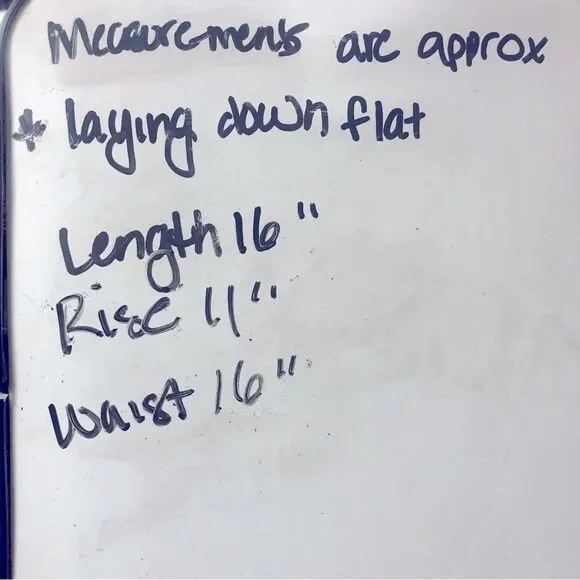 Measurements are approx
* laying down flat
Length 16"
Rise 11"
Waist 16"